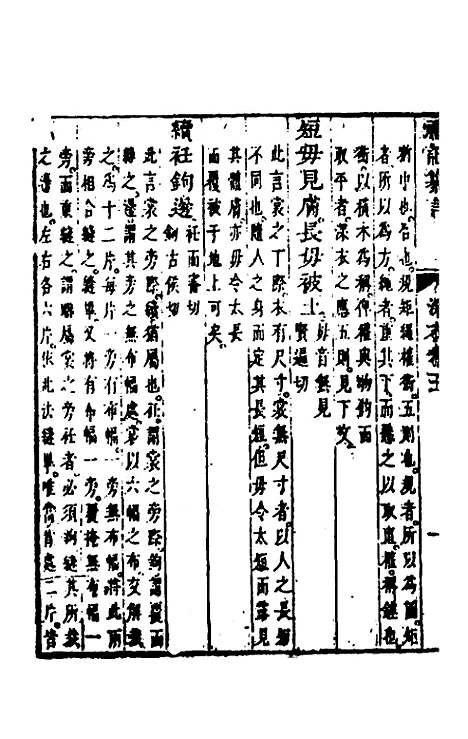 中也合也規矩繩權衡五則也規者所以為圓矩
者所以為方繩者重其下而懸之以取直權稱錘也
衡以橫木為稱俾權與物鈞而
取平者深衣之應五則見下文
短毋見膚長毋被土毋音無見賢遍切
此言裳之下際衣有尺寸裳無尺寸者以人之長短
不同也隨人之身而定其長短但毋令太短而露見
其體膚亦毋令太長
而覆被于地上可矣
續衽鉤邊衽而審切鉤古侯切
此言裳之旁際續猶屬也衽謂裳之旁際鉤謂從而
縫之邊謂其旁之無布幅處裳以六幅之布交解裁
之為十二片每片一旁有布幅一旁無布幅將此兩
旁相合縫之縫畢又將有布幅一旁覆掩無布幅一
旁而重縫之謂屬裳之旁衽者必須鉤縫其所裁
之邊也左右各六片依此法縫畢唯當處二片